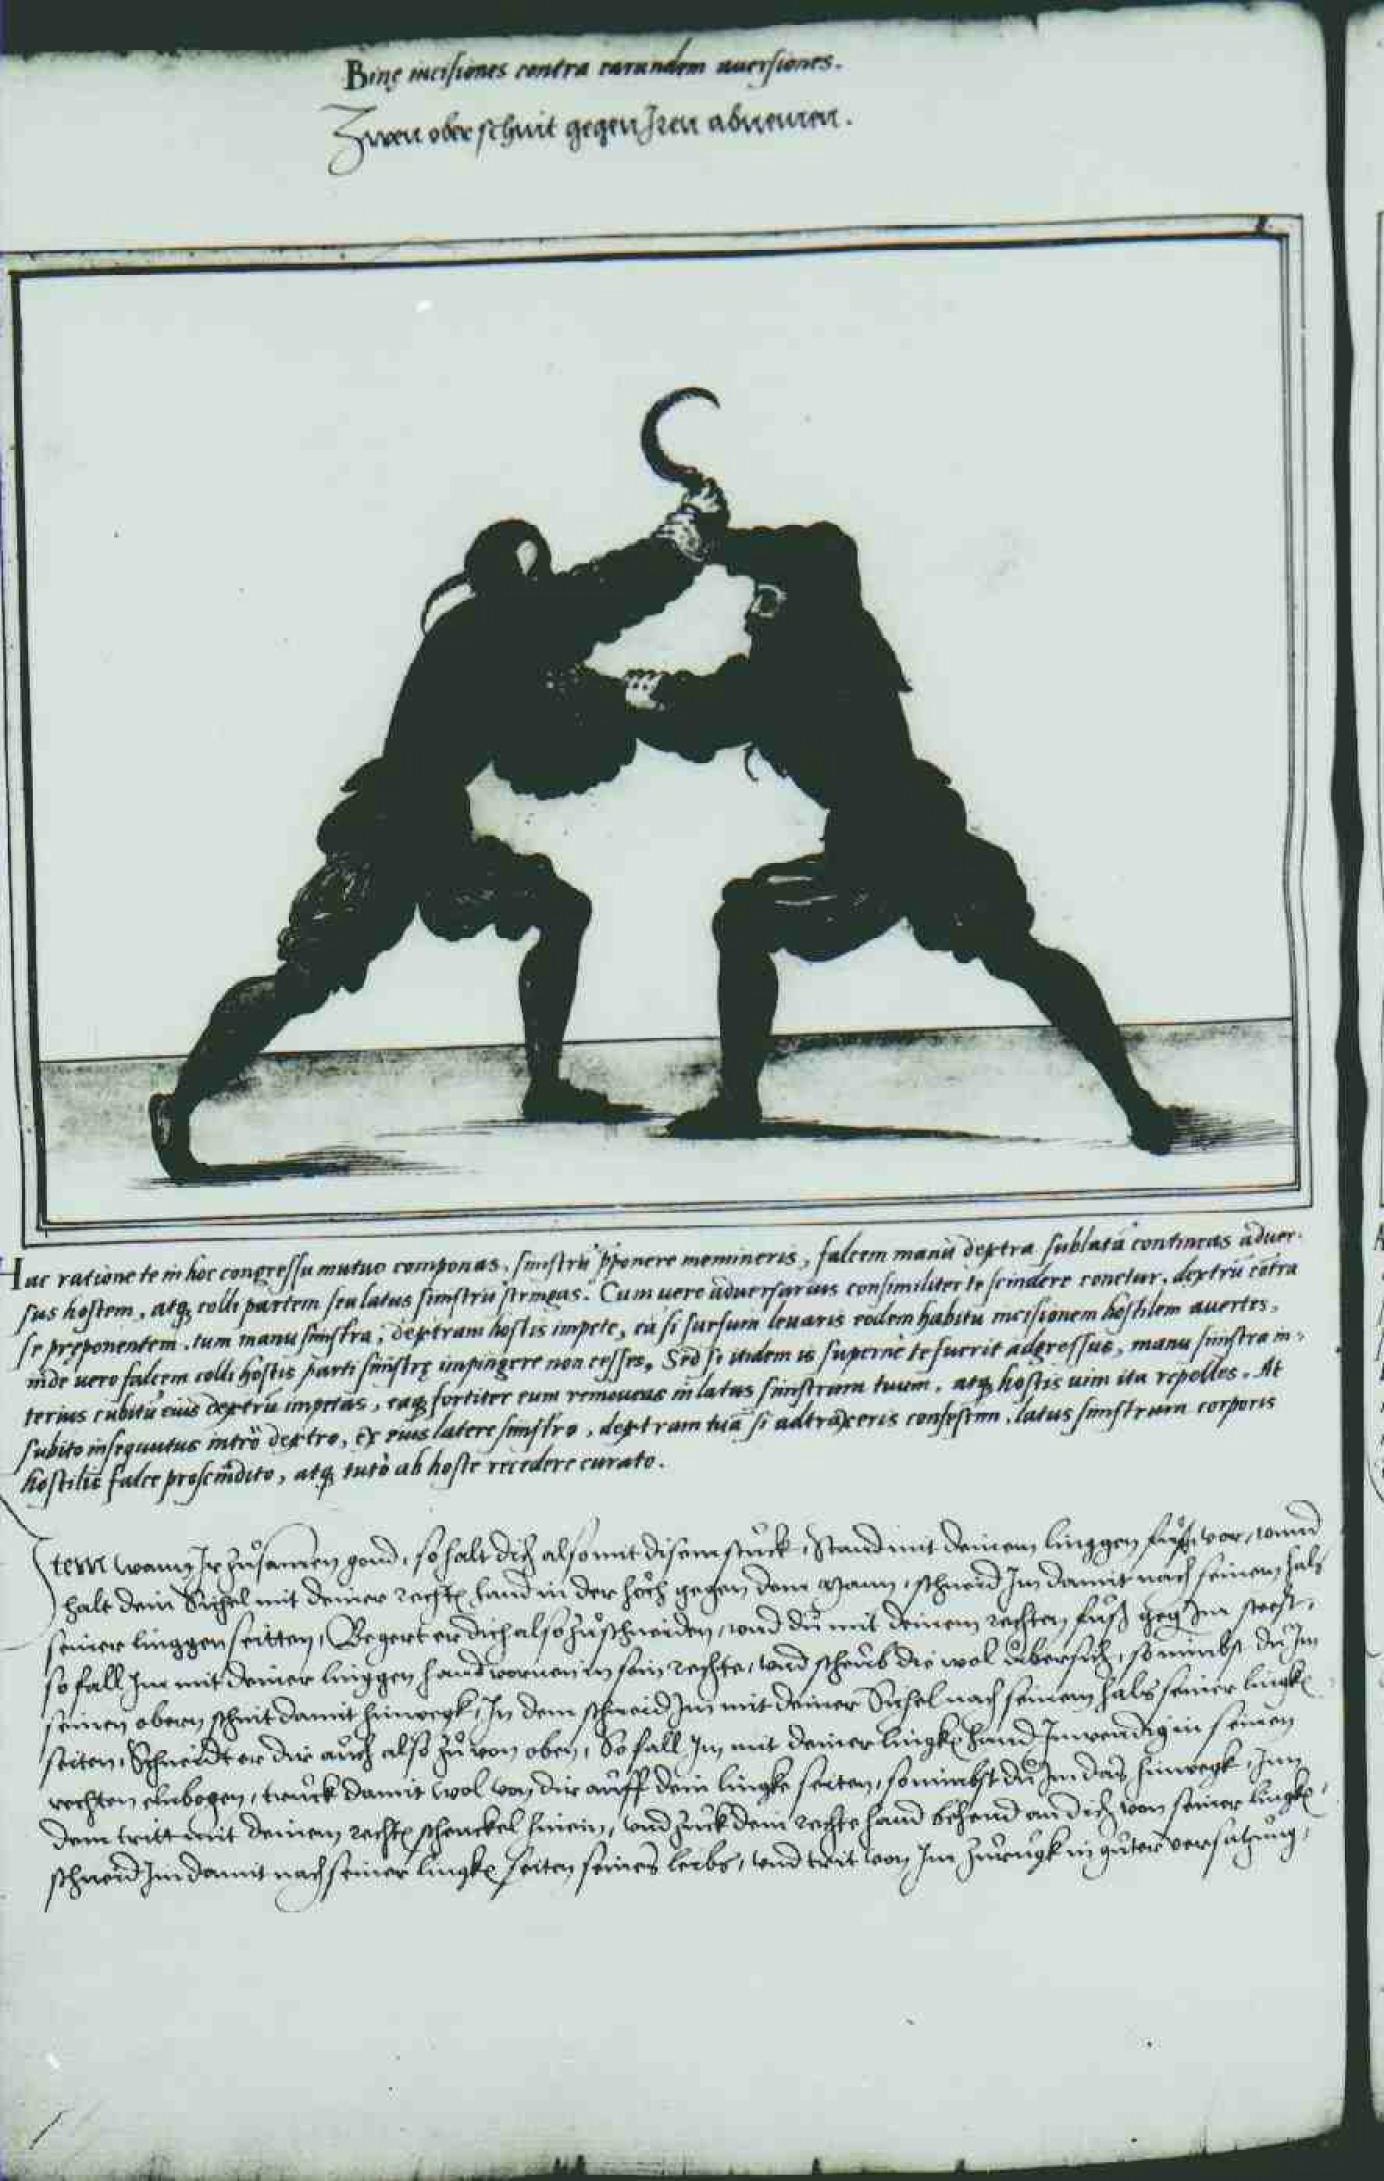 Binę incisiones contra earundem auersiones.
Zwen ober schnit gegen Iren abnemen.
Hac ratione te in hoc congressu mutuo componas, sinistrũ p̃ponere memineris, falcem manu dextra sublatã contineas aduer-
sus hostem, atq; colli partem seu latus sinistrũ stringas. Cum uero aduersarius consimiliter te scindere conetur, dextrũ cõtra
se pręponentem, tum manu sinistra, dextram hostis impete, eã si sursum leuaris eodem habitu incisionem hostilem auertes,
inde uero falcem colli hostis parti sinistrę impingere non cesses, Sed si itidem is supernè te fuerit adgressus, manu sinistra in-
terius cubitũ eius dextrũ impetas, eaq; fortiter eum remoueas in latus sinistrum tuum, atq; hostis uim ita repelles. At
subito insequutus intrò dextro, ex eius latere sinistro, dextram tuã si adtraxeris confestim, latus sinistrum corporis
hostilis falce proscindito, atq; tutò ab hoste recedere curato.
Item wann Ir zůsamen gond, so halt dich also mit disem stuck, Stand mit deinem linggen fůß vor, vnnd
halt dein Sichel mit deiner rechtẽ hand in der höch gegen dem Mann, schneid Im damit nach seinem hals
seiner linggen seitten, Begert er dich also zůschneiden, vnd du mit deinem rechten fůß geg Im steest,
so fall Im mit deiner linggen hand vornen in sein rechte, vnd scheub die wol übersich, so nimbst du Im
seinen obern schnit damit hinwegk, In dem schneid Im mit deiner Sichel nach seinem hals seiner linckẽ
seiten, Schneidt er dir auch also zů von oben, So fall Im mit deiner linckẽ hand Inwendig in seinen
rechten elnbogen, truck damit wol von dir auff dein lingke seiten, so nimbst du Im das hinwegk, Inn
dem tritt mit deinem rechtẽ schenckel hinein, vnd zuck dein rechte hand behend an dich von seiner linckẽ,
schneid Im damit nach seiner linckẽ seiten seines leibs, vnd trit von Im zůrugk in gůter versatzung,